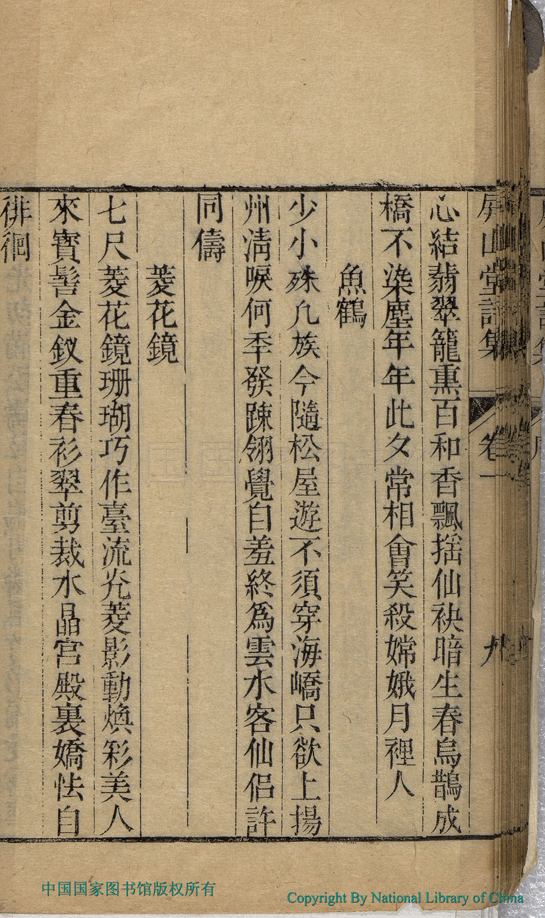 屏山堂詩集 卷一 九
心結翡翠籠熏百和香飄揺仙袂暗生春烏鵲成
橋不染塵年年此夕常相會笑殺嫦娥月裡人
魚鶴
少小殊凡族今隨松屋遊不須穿海嶠只欲上揚
州淸唳何季發踈翎覺自羞終爲雲水客仙侶許
同儔
菱花鏡
七尺菱花鏡珊瑚巧作臺流光菱影動煥彩美人
來寳髻金釵重春衫翠剪裁水晶宮殿裏嬌怯自
徘徊
中国国家图书馆版权所有
Copyright By National Library of China